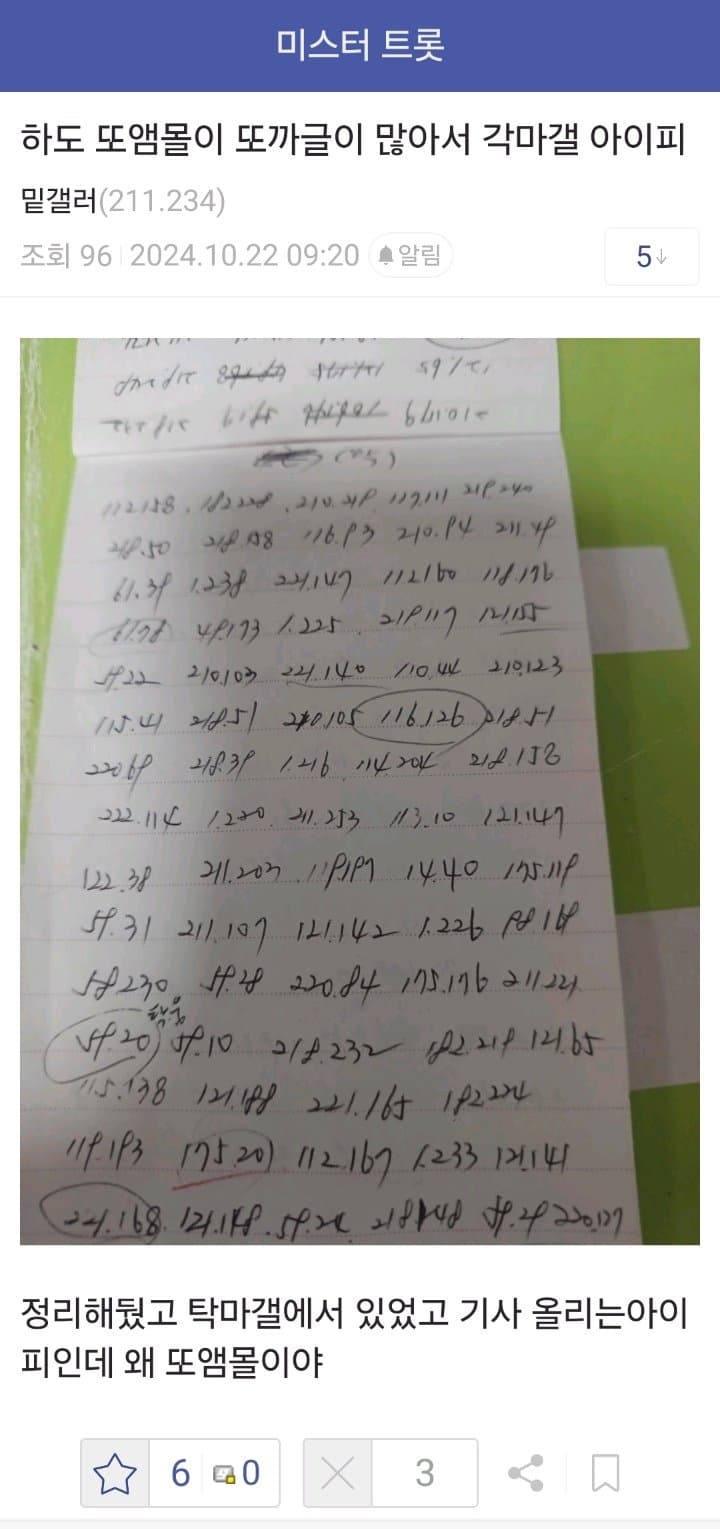 미스터 트롯
하도 또앰몰이 또까글이 많아서 각마갤 아이피
밑갤러(211.234)
조회 96 2024.10.22 09:20 알림
5↓
112.158. 210.219 117.111 219.240
218.50 116.93 210.94 211.49
61.39 1.238 221.147 112.160 118.176
49.173 1.225. 219.117 121.155
59.22 210.103 221.140 110.44 210.123
115.41 218.51 210.105 116.126 218.51
220.69 218.39 1.216 114.204 218.158
222.114 1.220. 211.253 113.10 121.147
122.38 211.203. 119.197 14.40 175.119
59.31 211.107 121.142 1.226
58.230. 59.28 220.84 175.176 211.221
59.20 59.10 218.232 182.219 121.65
115.138 121.188 221.165 182.224
119.193 175.20 112.167 1.233 121.141
221.168. 218.148 59.29 220.127
정리해뒀고 탁마갤에서 있었고 기사 올리는아이
피인데 왜 또앰몰이야
6 0 3